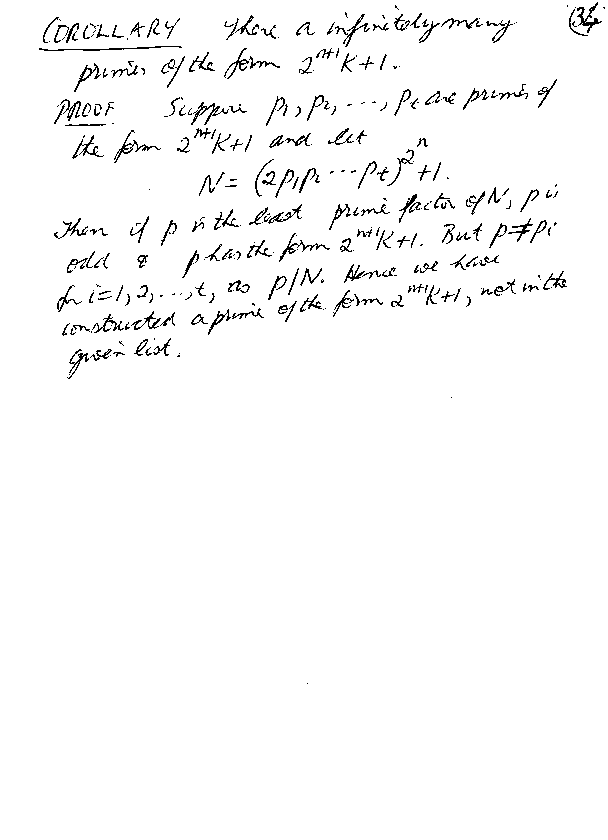 COROLLARY There a infinitely many (34
primes of the form 2^{n+1}K+1.
PROOF Suppose p₁, p₂, ..., p_t are primes of
the form 2^{n+1}K+1 and let
N = (2p₁p₂ ... p_t)^{2^n} + 1.
Then if p is the least prime factor of N, p is
odd & p has the form 2^{n+1}K+1. But p ≠ p_i
for i=1, 2, ..., t, as p/N. Hence we have
constructed a prime of the form 2^{n+1}K+1, not in the
given list.